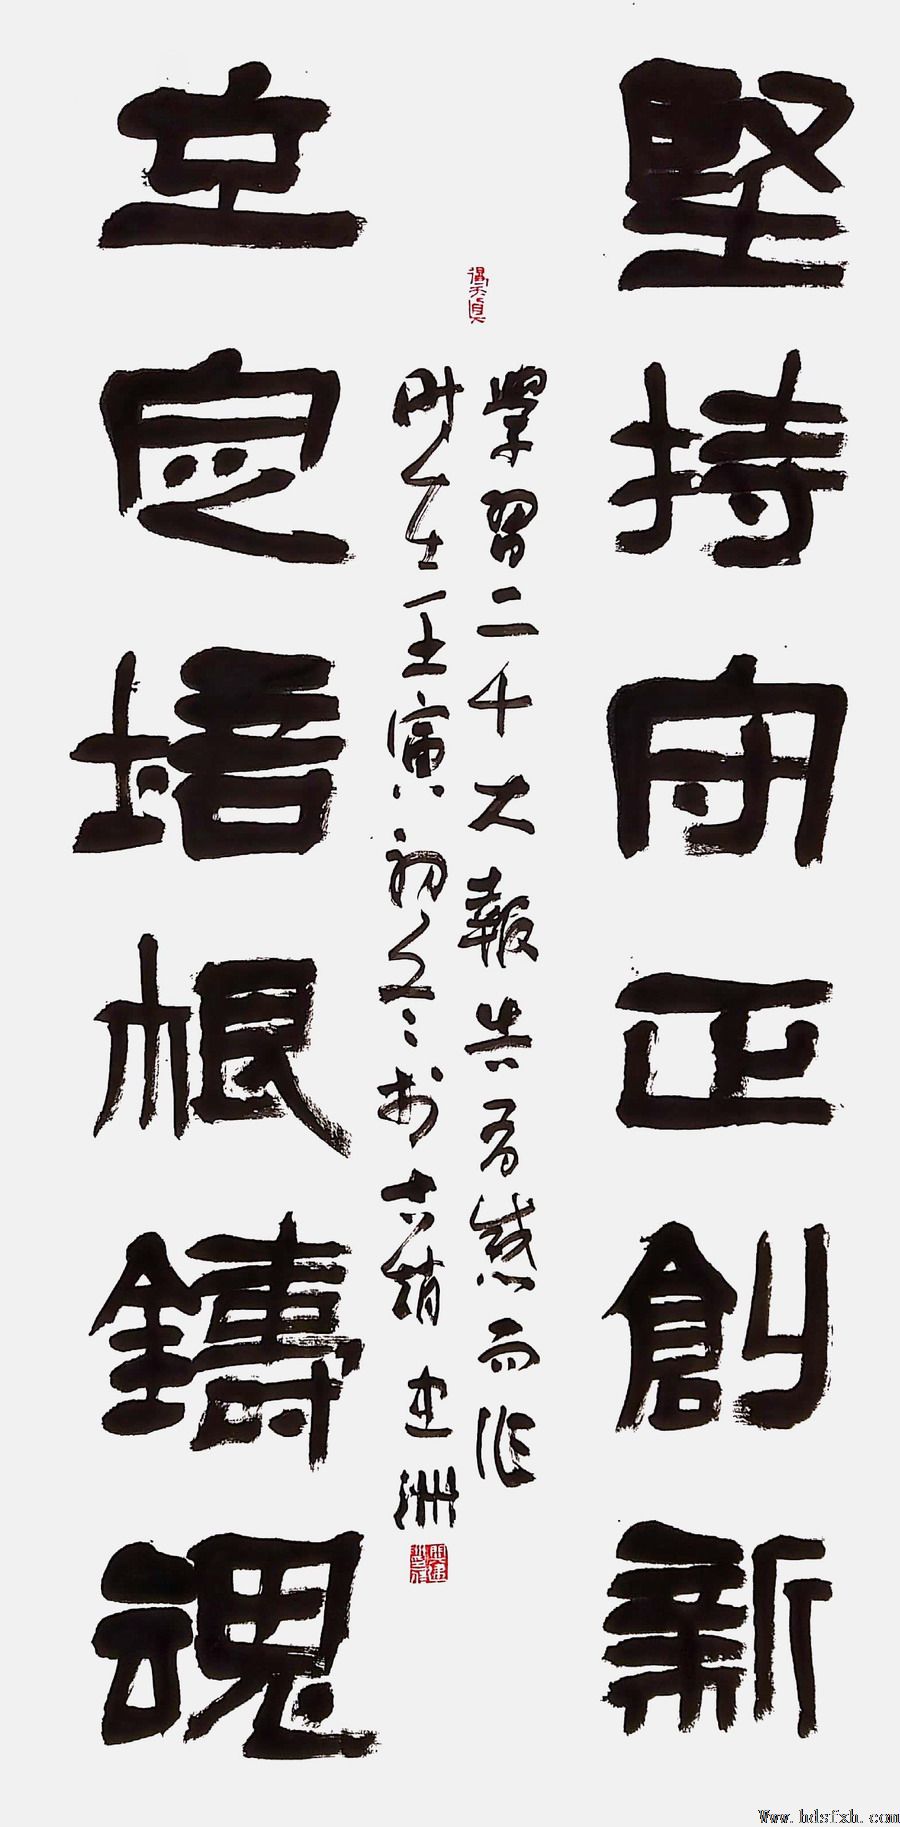 堅持守正創新
立定培根鑄魂
得天真
學習二十大報告有感而作
时在壬寅初冬於古趙 建洲
Www.hdsfxh.com